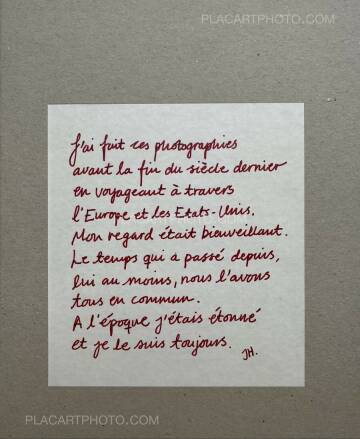 PLACARTPHOTO.COM
J'ai fait ces photographies
avant la fin du siècle dernier
en voyageant à travers
l'Europe et les Etats-Unis.
Mon regard était bienveillant.
Le temps qui a passé depuis,
lui au moins, nous l'avons
tous en commun.
A l'époque j'étais étonné
et je le suis toujours.
JH.
PLACARTPHOTO.COM